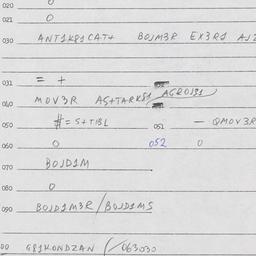 020 0
021 0
030 ANT1K81CAT4 BOJM3R EX3R1
031 = +
040 MOV3R AS+TARK81 AGROJ91
050 # = S+T18L 051 — QMOV3R
060 0 052 0
070 BOJD1M
080 0
090 BOJD1M3R/BOJD1MS
00 G81KONDZAN (063030